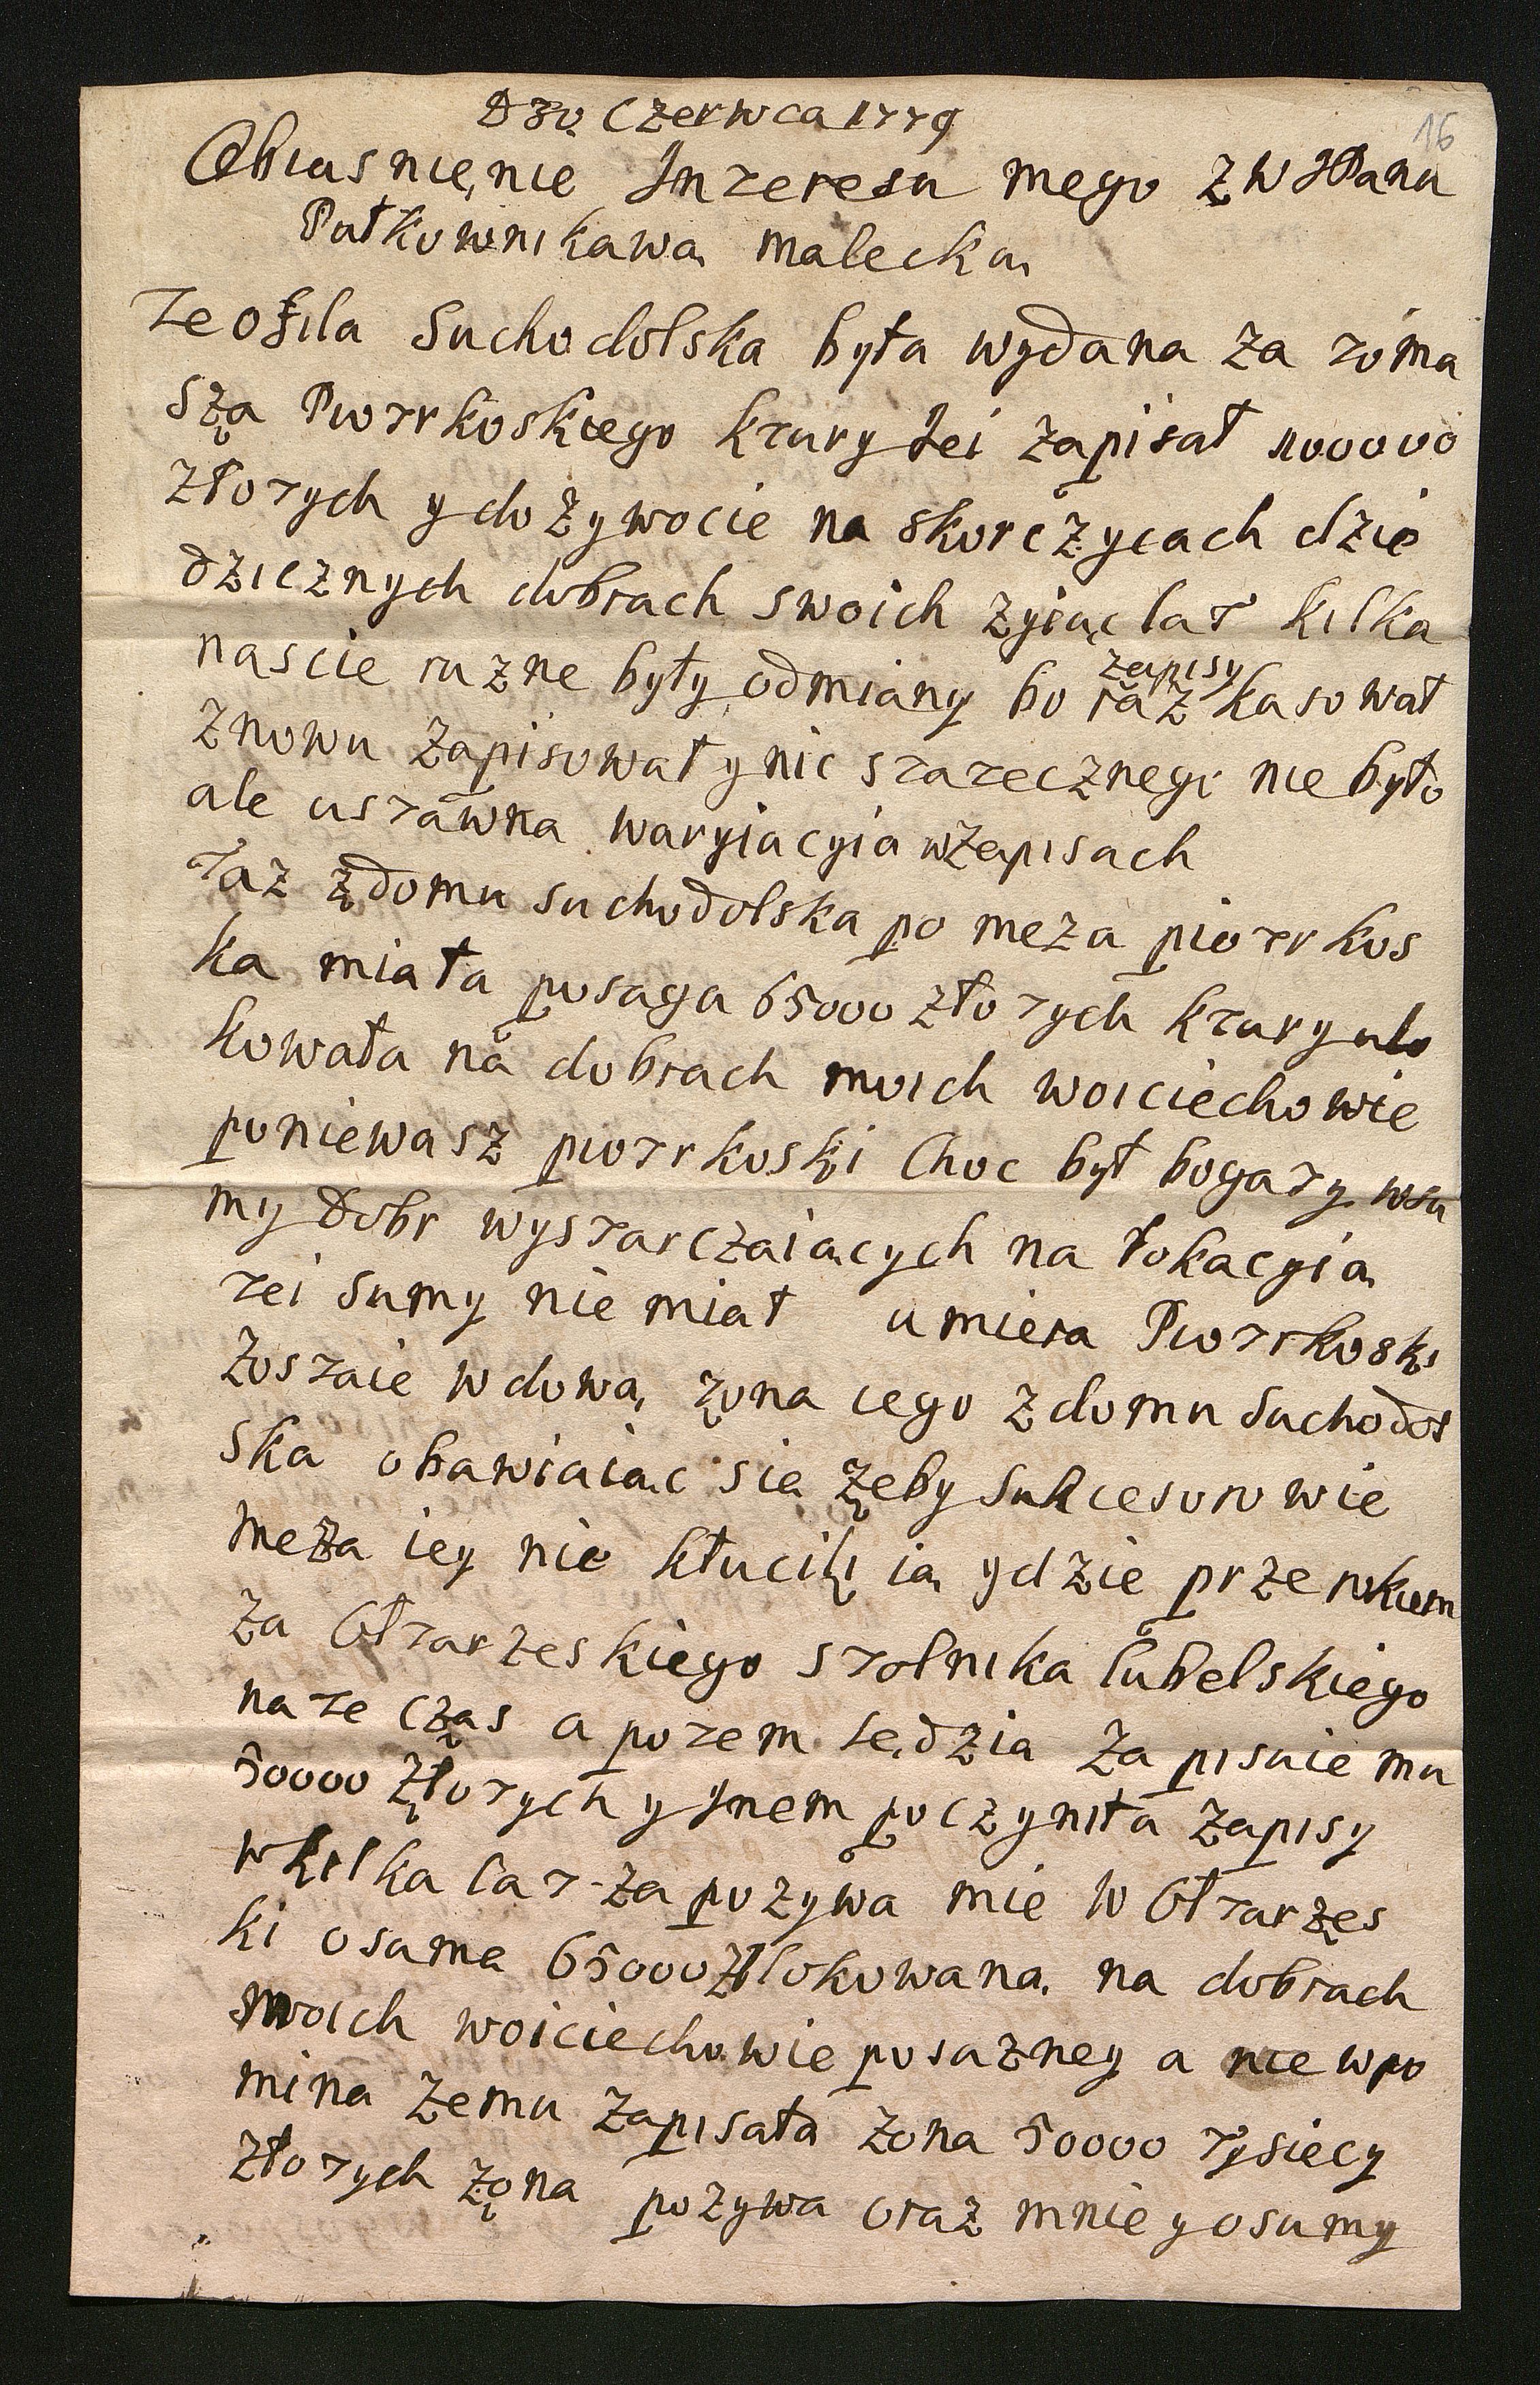 D 30. Czerwca 1779
16
Obiasnię,nie Interesu mego z W JPanu
Pułkownikawą malecką
Teofila Suchodolska była wydana za Toma
sza Piotrkoskiego ktury Jei zapisał 100000
złotych y dozywocie na skorczycach dzie
dzicznych dobrach swoich zyiąc lat kilka
nascie ruzne były odmiany bo raz zapisy kasował
znowu zapisował y nic statecznego nie było
ale ustawna waryiacyia w zapisach
Taz z domu suchodolska po męza piotrkos
ka miała posagu 65000 złotych ktury ulo
kowała na dobrach moich woiciechowie
poniewasz piotrkoski Choc był bogaty w su
my dobr wystarczaiących na łokacyią
tei sumy nie miał umiera Piotrkoski
zostaie wdową zona iego z domu Suchodol
ska obawiaiąc się zeby sukcesorowie
męza iey nie kłucili ią ydzie przed rokiem
za Ołtarzeskiego stolnika lubelskiego
na te czas a potem sędzia zapisuie mu
50000 złotych y ynem poczyniła zapisy
w kilka lat zapozywa mie W Ołtarzes
ki o sumę 65000 zł lokowaną na dobrach
moich woiciechowie posazney a nie wpo
mina ze mu zapisała zona 50000 tysięcy
złotych zona pozywa oraz mnie y o sumy